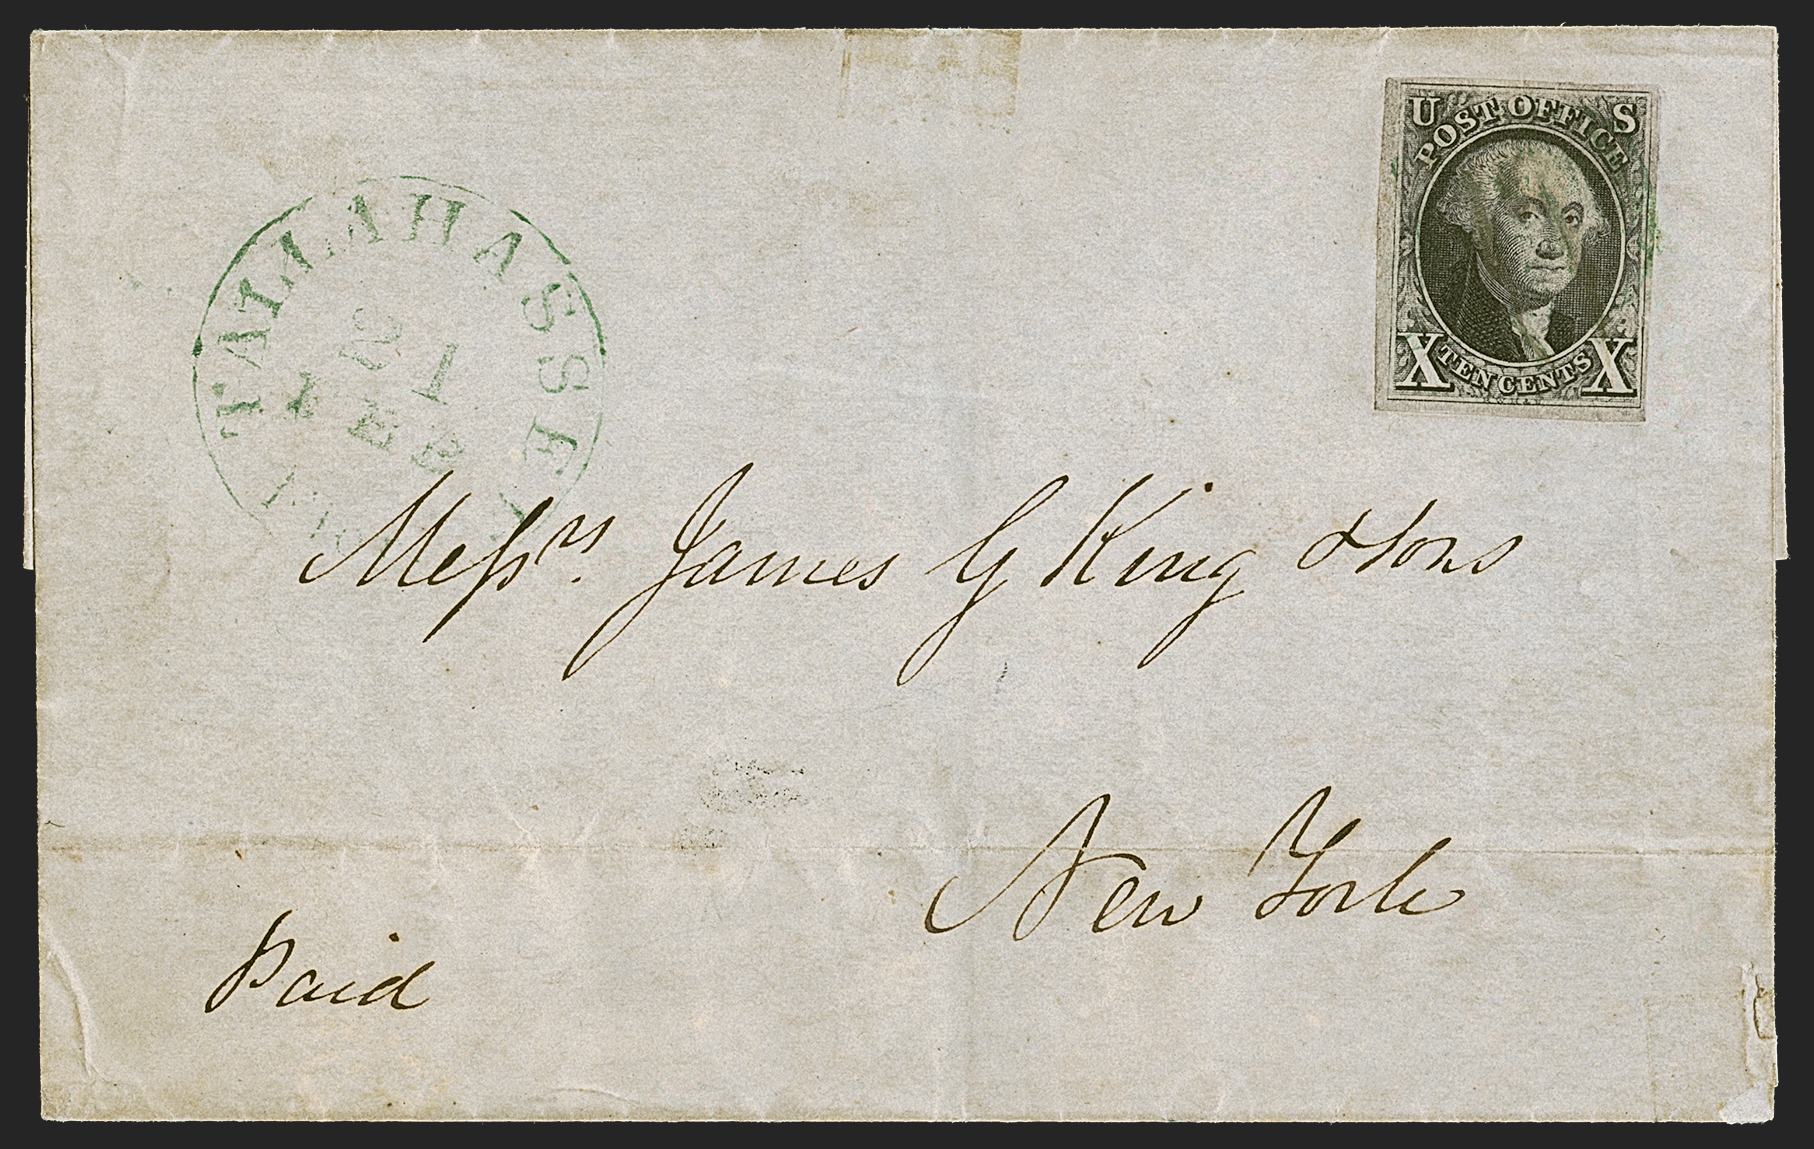 U S
POST OFFICE
X TEN CENTS X
TALLAHASSEE
21
FEB
Messrs. James G King & Sons
New York
Paid